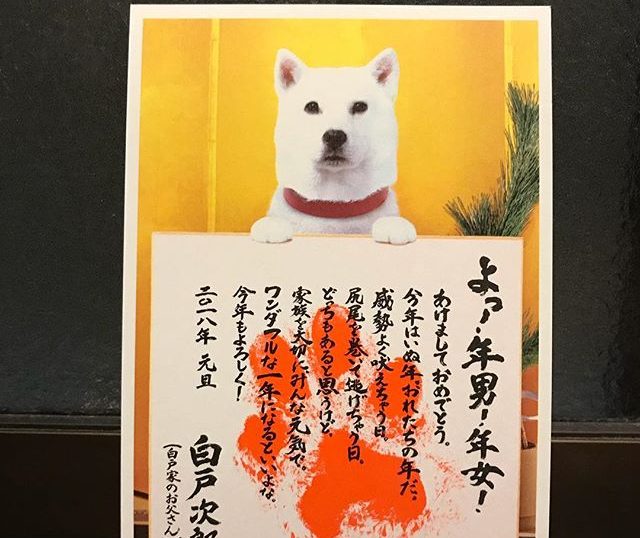 よっ！年男！年女！
あけましておめでとう。
今年はいぬ年。おれたちの年だ。
威勢よく吠えちゃう日。
尻尾を巻いて逃げちゃう日。
どっちもあると思うけど、
家族を大切に、みんな元気で。
ワンダフルな一年になるといよな。
今年もよろしく！
二〇一八年 元旦
白戸次郎
（白戸家のお父さん